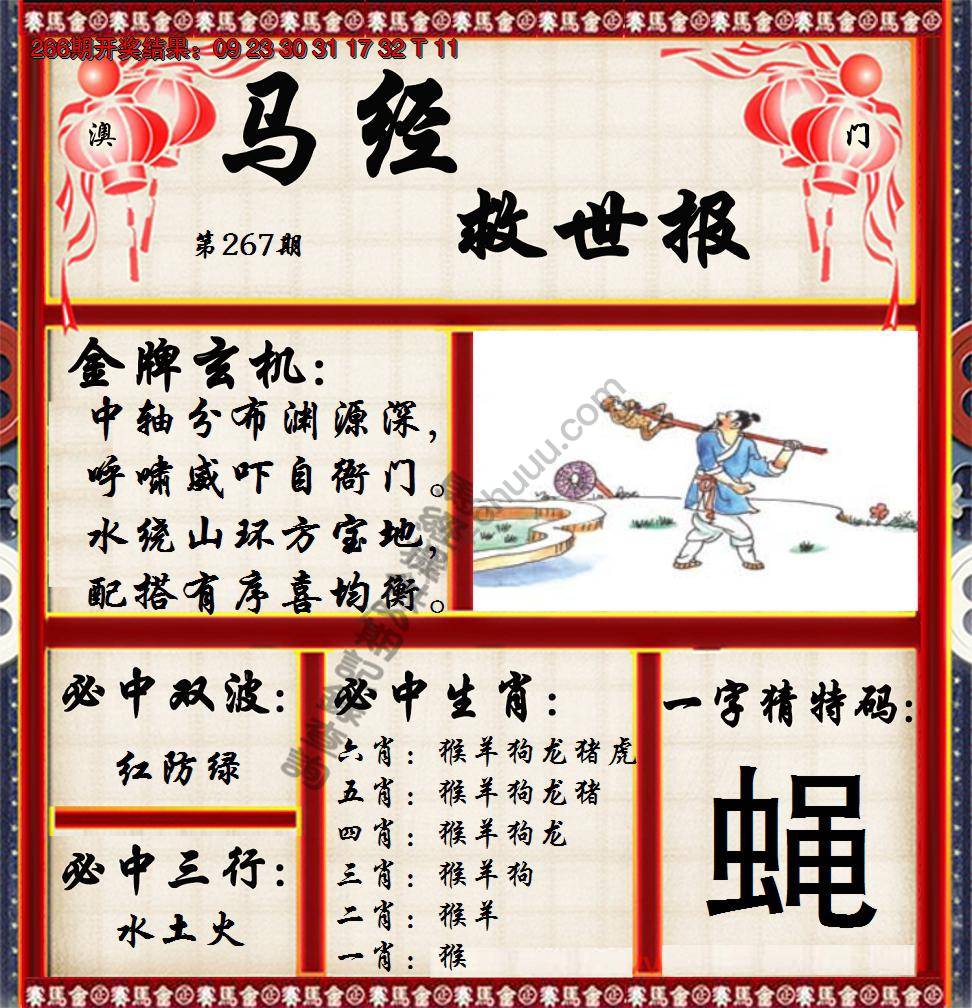 266期开奖结果：09 23 30 31 17 32 T 11
澳 门
马经
救世报
第267期
金牌玄机：
中轴分布渊源深，
呼啸威吓自衙门。
水绕山环方宝地，
配搭有序喜均衡。
必中双波：
红防绿
必中三行：
水土火
必中生肖：
六肖：猴羊狗龙猪虎
五肖：猴羊狗龙猪
四肖：猴羊狗龙
三肖：猴羊狗
二肖：猴羊
一肖：猴
一字猜特码：
蝇